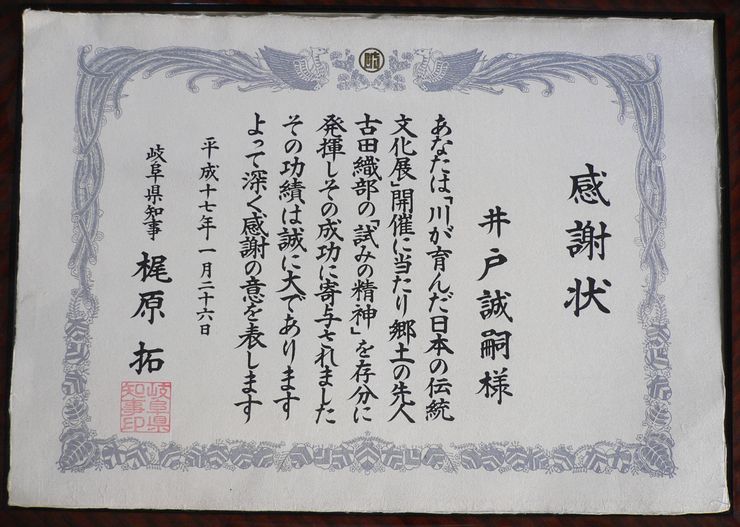 岐
感謝状
井戸誠嗣様
あなたは「川が育んだ日本の伝統
文化展」開催に当たり郷土の先人
古田織部の「試みの精神」を存分に
発揮しその成功に寄与されました
その功績は誠に大であります
よって深く感謝の意を表します
平成十七年一月二十六日
岐阜県知事 梶原拓
岐阜県
知事印